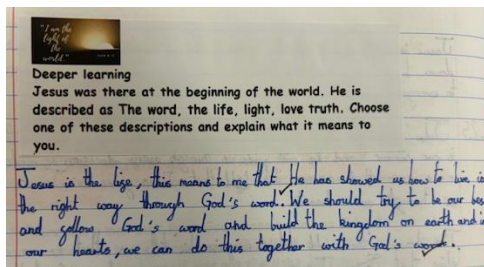 "I am the
light of
the
world."
Deeper learning
Jesus was there at the beginning of the world. He is
described as The word, the life, light, love truth. Choose
one of these descriptions and explain what it means to
you.
Jesus is the life, this means to me that He has showed us how to live in
the right way through God's word. We should try to be our best
and follow God's word and build the kingdom on earth and in
our hearts, we can do this together with God's